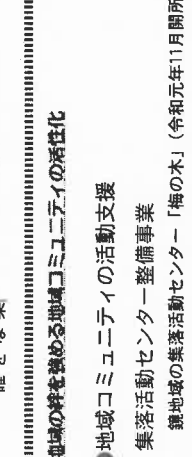 地域の絆を強める地域コミュニティの活性化
地域コミュニティの活動支援
集落活動センター整備事業
鏡地域の集落活動センター「梅の木」(令和元年11月開所